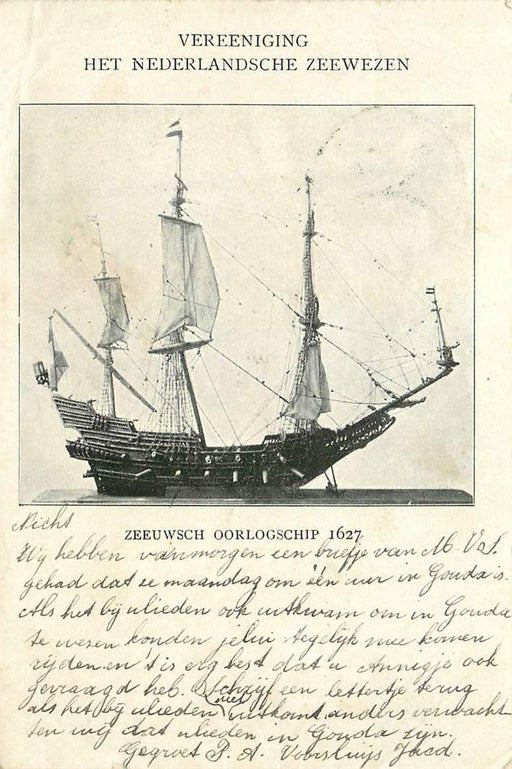 VEREENIGING
HET NEDERLANDSCHE ZEEWEZEN
Nicht
ZEEUWSCH OORLOGSCHIP 1627
Wij hebben vanmorgen een briefje van M. V. S.
gehad dat ze maandag om één uur in Gouda is.
Als het bij ulieden ook uitkwam om in Gouda
te wezen konden jelui tegelijk mee komen
rijden en 't is erg best dat u Annigje ook
gevraagd heb. Schrijf een lettertje terug
als het bij ulieden niet uitkomt anders verwacht-
ten wij dat ulieden in Gouda zijn.
Gegroet P. A. Voorsluijs Jacd.